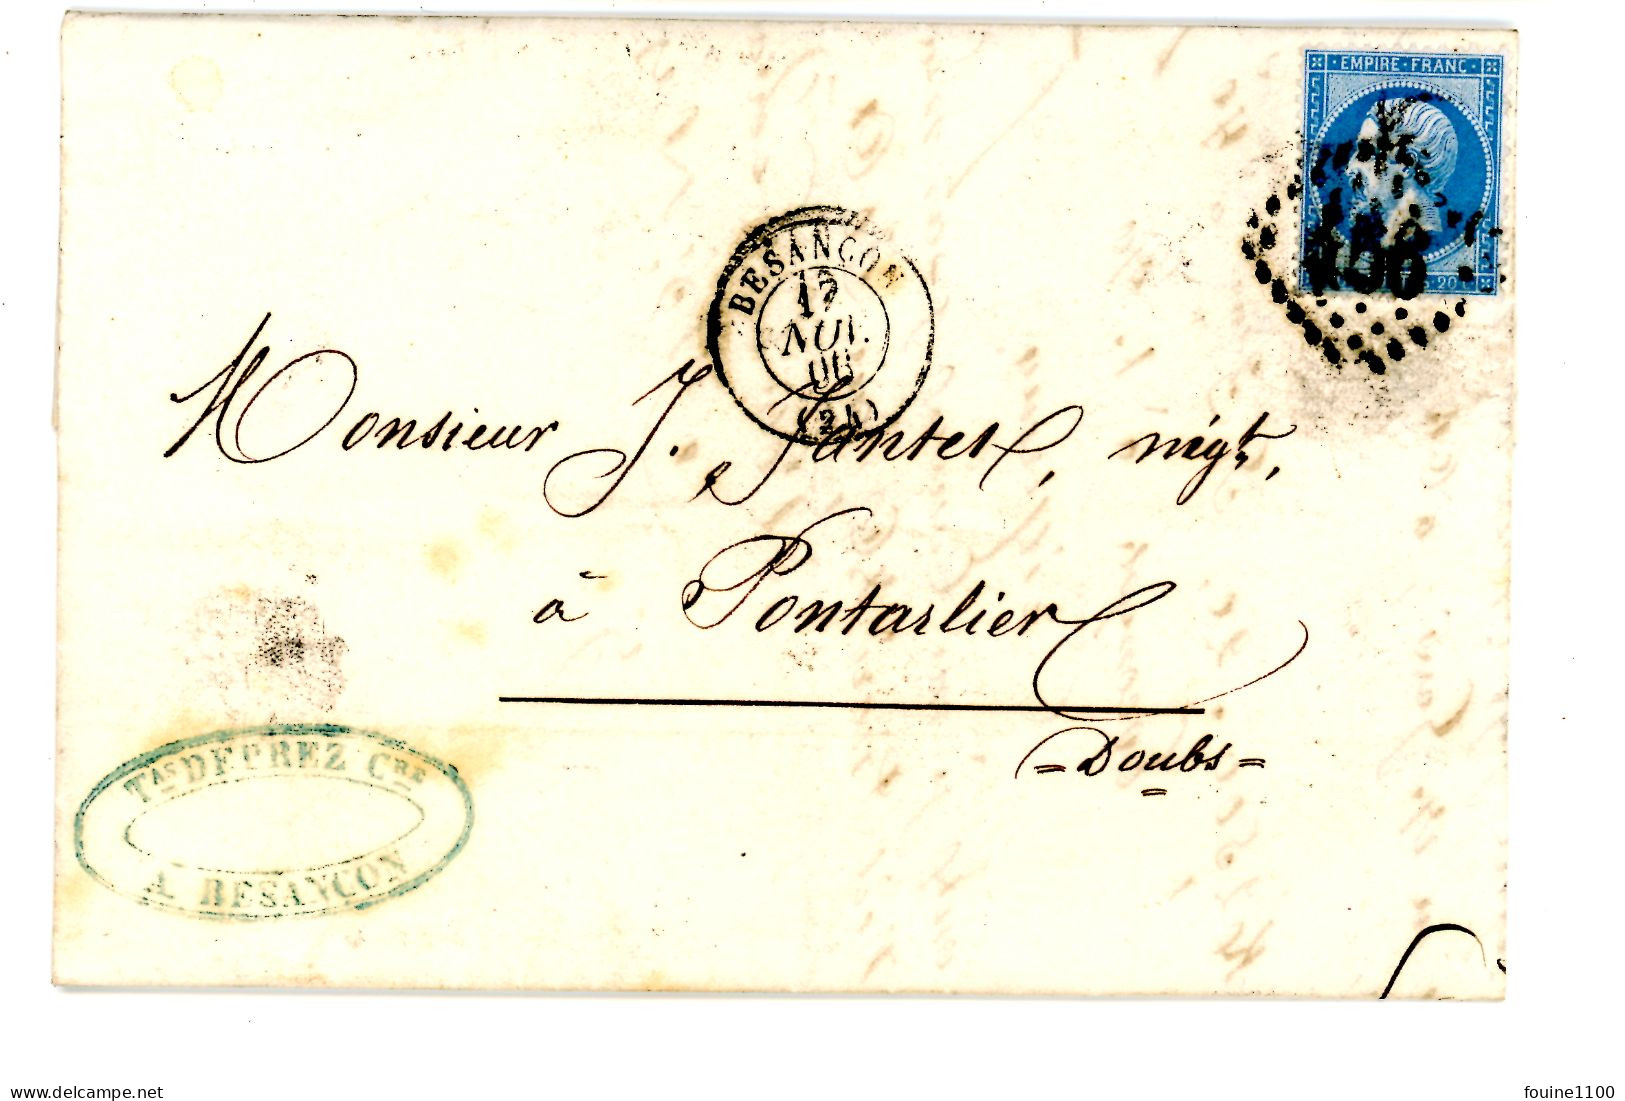 EMPIRE · FRANC ·
20
BESANÇON
17
NOV.
(24)
Monsieur J. Jantet, négt,
à Pontarlier
= Doubs =
DEPREZ
A BESANÇON
www.delcampe.net
fouine1100